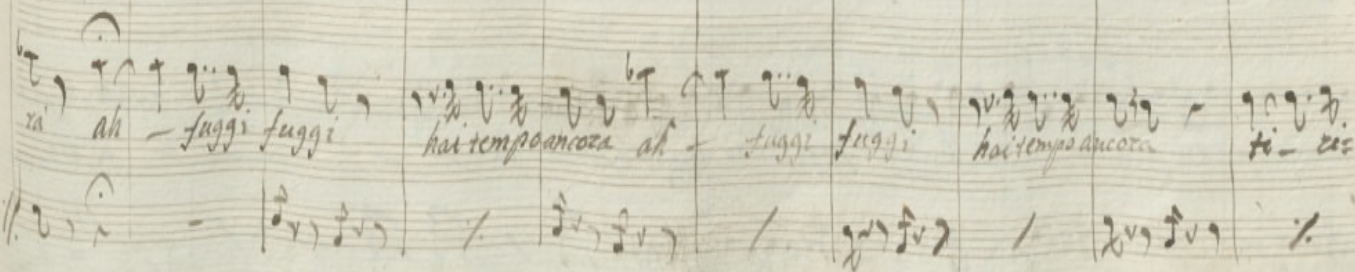 rà ah - fuggi fuggi hai tempo ancora ah - fuggi fuggi hai tempo ancora ti - ri=